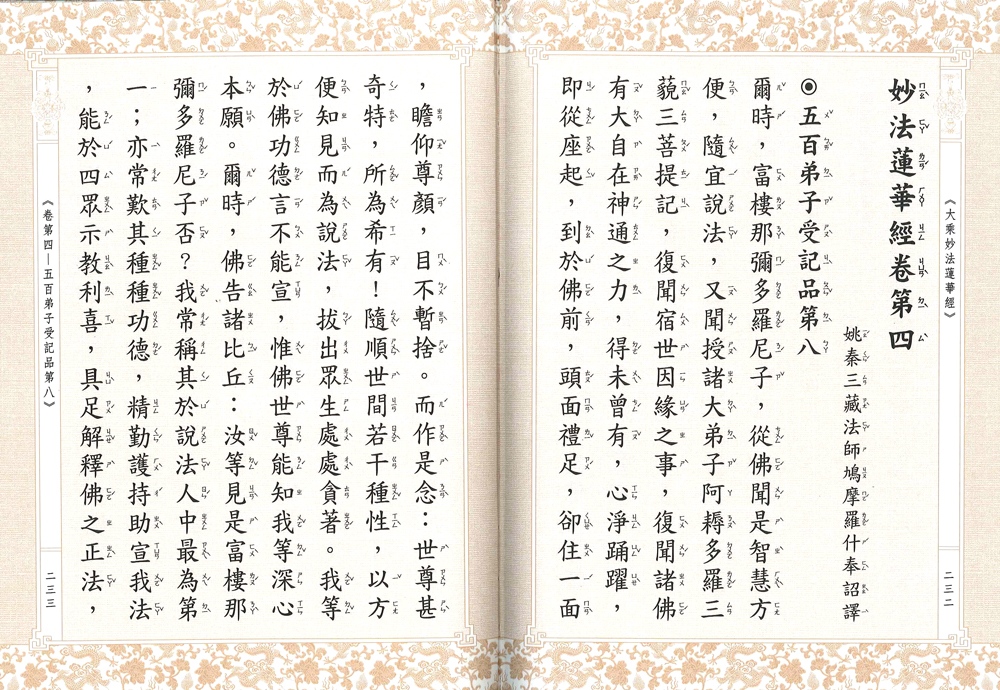 《大乘妙法蓮華經》
二三二
妙法蓮華經卷第四
姚秦三藏法師鳩摩羅什奉詔譯
◉五百弟子受記品第八
爾時，富樓那彌多羅尼子，從佛聞是智慧方
便，隨宜說法，又聞授諸大弟子阿耨多羅三
藐三菩提記，復聞宿世因緣之事，復聞諸佛
有大自在神通之力，得未曾有，心淨踊躍，
即從座起，到於佛前，頭面禮足，卻住一面
，瞻仰尊顏，目不暫捨。而作是念：世尊甚
奇特，所為希有！隨順世間若干種性，以方
便知見而為說法，拔出眾生處處貪著。我等
於佛功德言不能宣，惟佛世尊能知我等深心
本願。爾時，佛告諸比丘：汝等見是富樓那
彌多羅尼子否？我常稱其於說法人中最為第
一；亦常歎其種種功德，精勤護持助宣我法
，能於四眾示教利喜，具足解釋佛之正法，
《卷第四—五百弟子受記品第八》
二三三